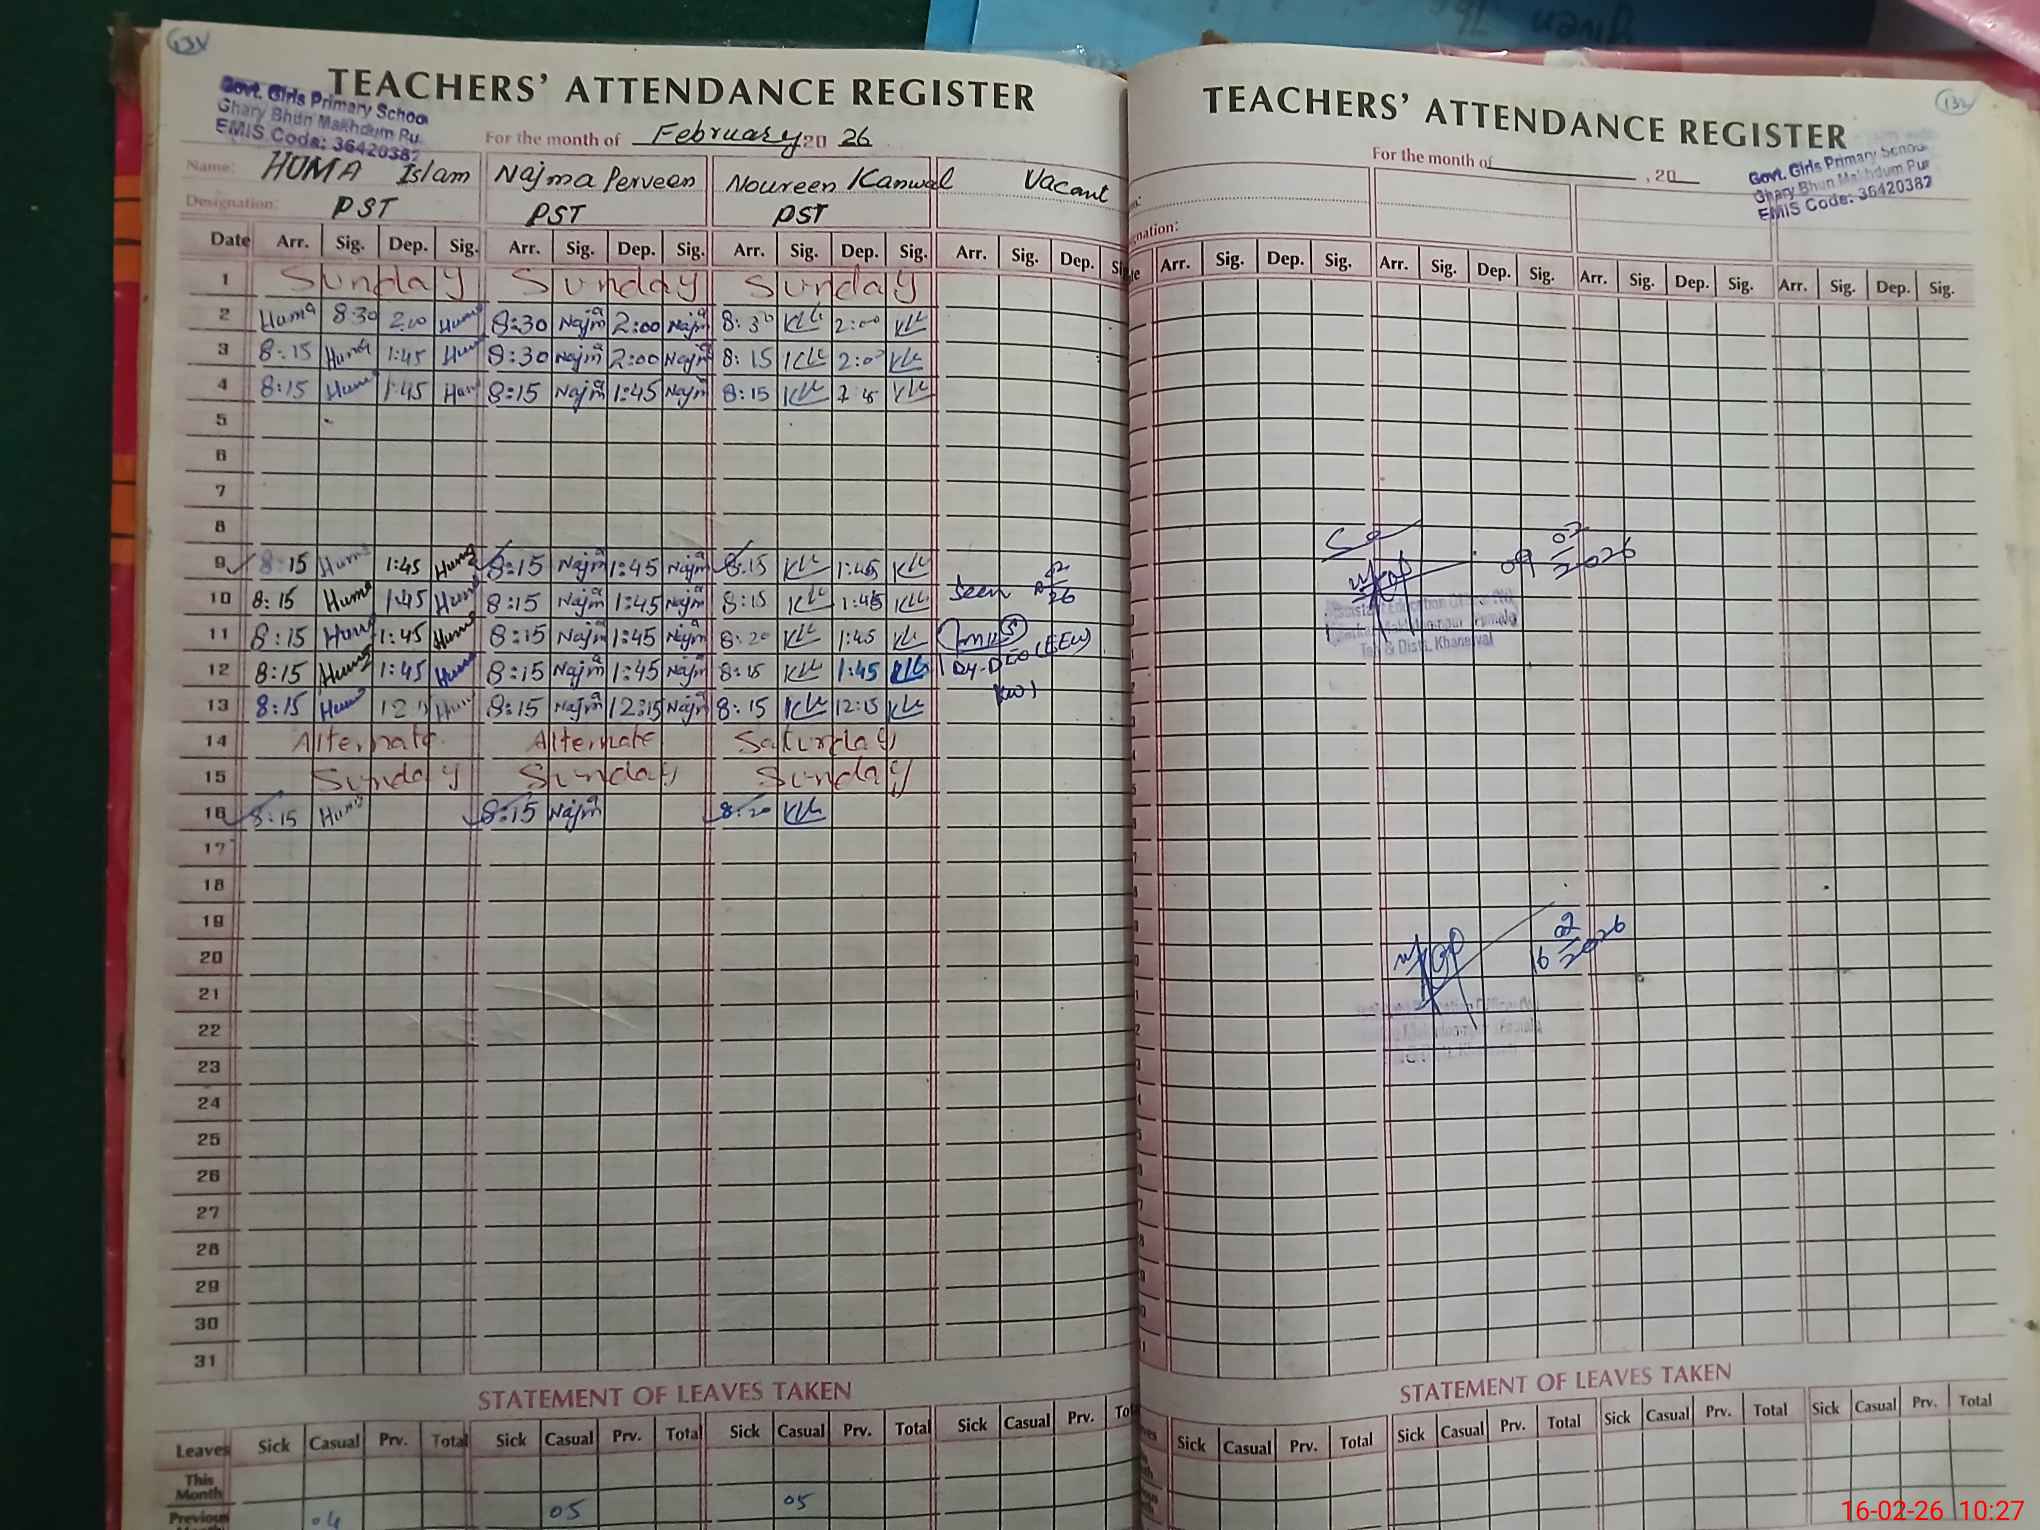 134
TEACHERS' ATTENDANCE REGISTER
Govt. Girls Primary School
Ghary Bhun Makhdum Pu
EMIS Code: 36420382
For the month of February 20 26
Name: HUMA Islam Najma Perveen Noureen Kanwal Vacant
Designation: PST PST PST
Date Arr. Sig. Dep. Sig. Arr. Sig. Dep. Sig. Arr. Sig. Dep. Sig. Arr. Sig. Dep.
1 Sunday Sunday Sunday
2 Huma 8:30 2:00 Huma 8:30 Najm 2:00 Najm 8:30 2:00
3 8:15 Huma 1:45 Hum 8:30 Najm 2:00 Najm 8:15 2:00
4 8:15 Hum 1:45 Hum 8:15 Najm 1:45 Najm 8:15
5
6
7
8
9 8:15 Huma 1:45 Huma 8:15 Najm 1:45 Najm 8:15 1:45
10 8:15 Huma 1:45 Huma 8:15 Najm 1:45 Najm 8:15 1:45 Seen
11 8:15 Huma 1:45 Huma 8:15 Najm 1:45 Najm 8:20 1:45
12 8:15 Huma 1:45 Huma 8:15 Najm 1:45 Najm 8:15 1:45 Dy-DEO (EEW)
13 8:15 Huma 12 Hum 8:15 Najm 12:15 Najm 8:15 12:15
14 Alternate Alternate Saturday
15 Sunday Sunday Sunday
16 8:15 Huma 8:15 Najm 8:20
17
18
19
20
21
22
23
24
25
26
27
28
29
30
31
STATEMENT OF LEAVES TAKEN
Leaves Sick Casual Prv. Total Sick Casual Prv. Total Sick Casual Prv. Total Sick Casual Prv.
This
Month
Previous 04 05 05
TEACHERS' ATTENDANCE REGISTER
For the month of , 20
Govt. Girls Primary School
Ghary Bhun Makhdum Pur
EMIS Code: 36420382
Arr. Sig. Dep. Sig. Arr. Sig. Dep. Sig. Arr. Sig. Dep. Sig. Arr. Sig. Dep. Sig.
09 02 2026
Teh & Distt. Khanewal
16 02 2026
STATEMENT OF LEAVES TAKEN
Sick Casual Prv. Total Sick Casual Prv. Total Sick Casual Prv. Total Sick Casual Prv. Total
16-02-26 10:27